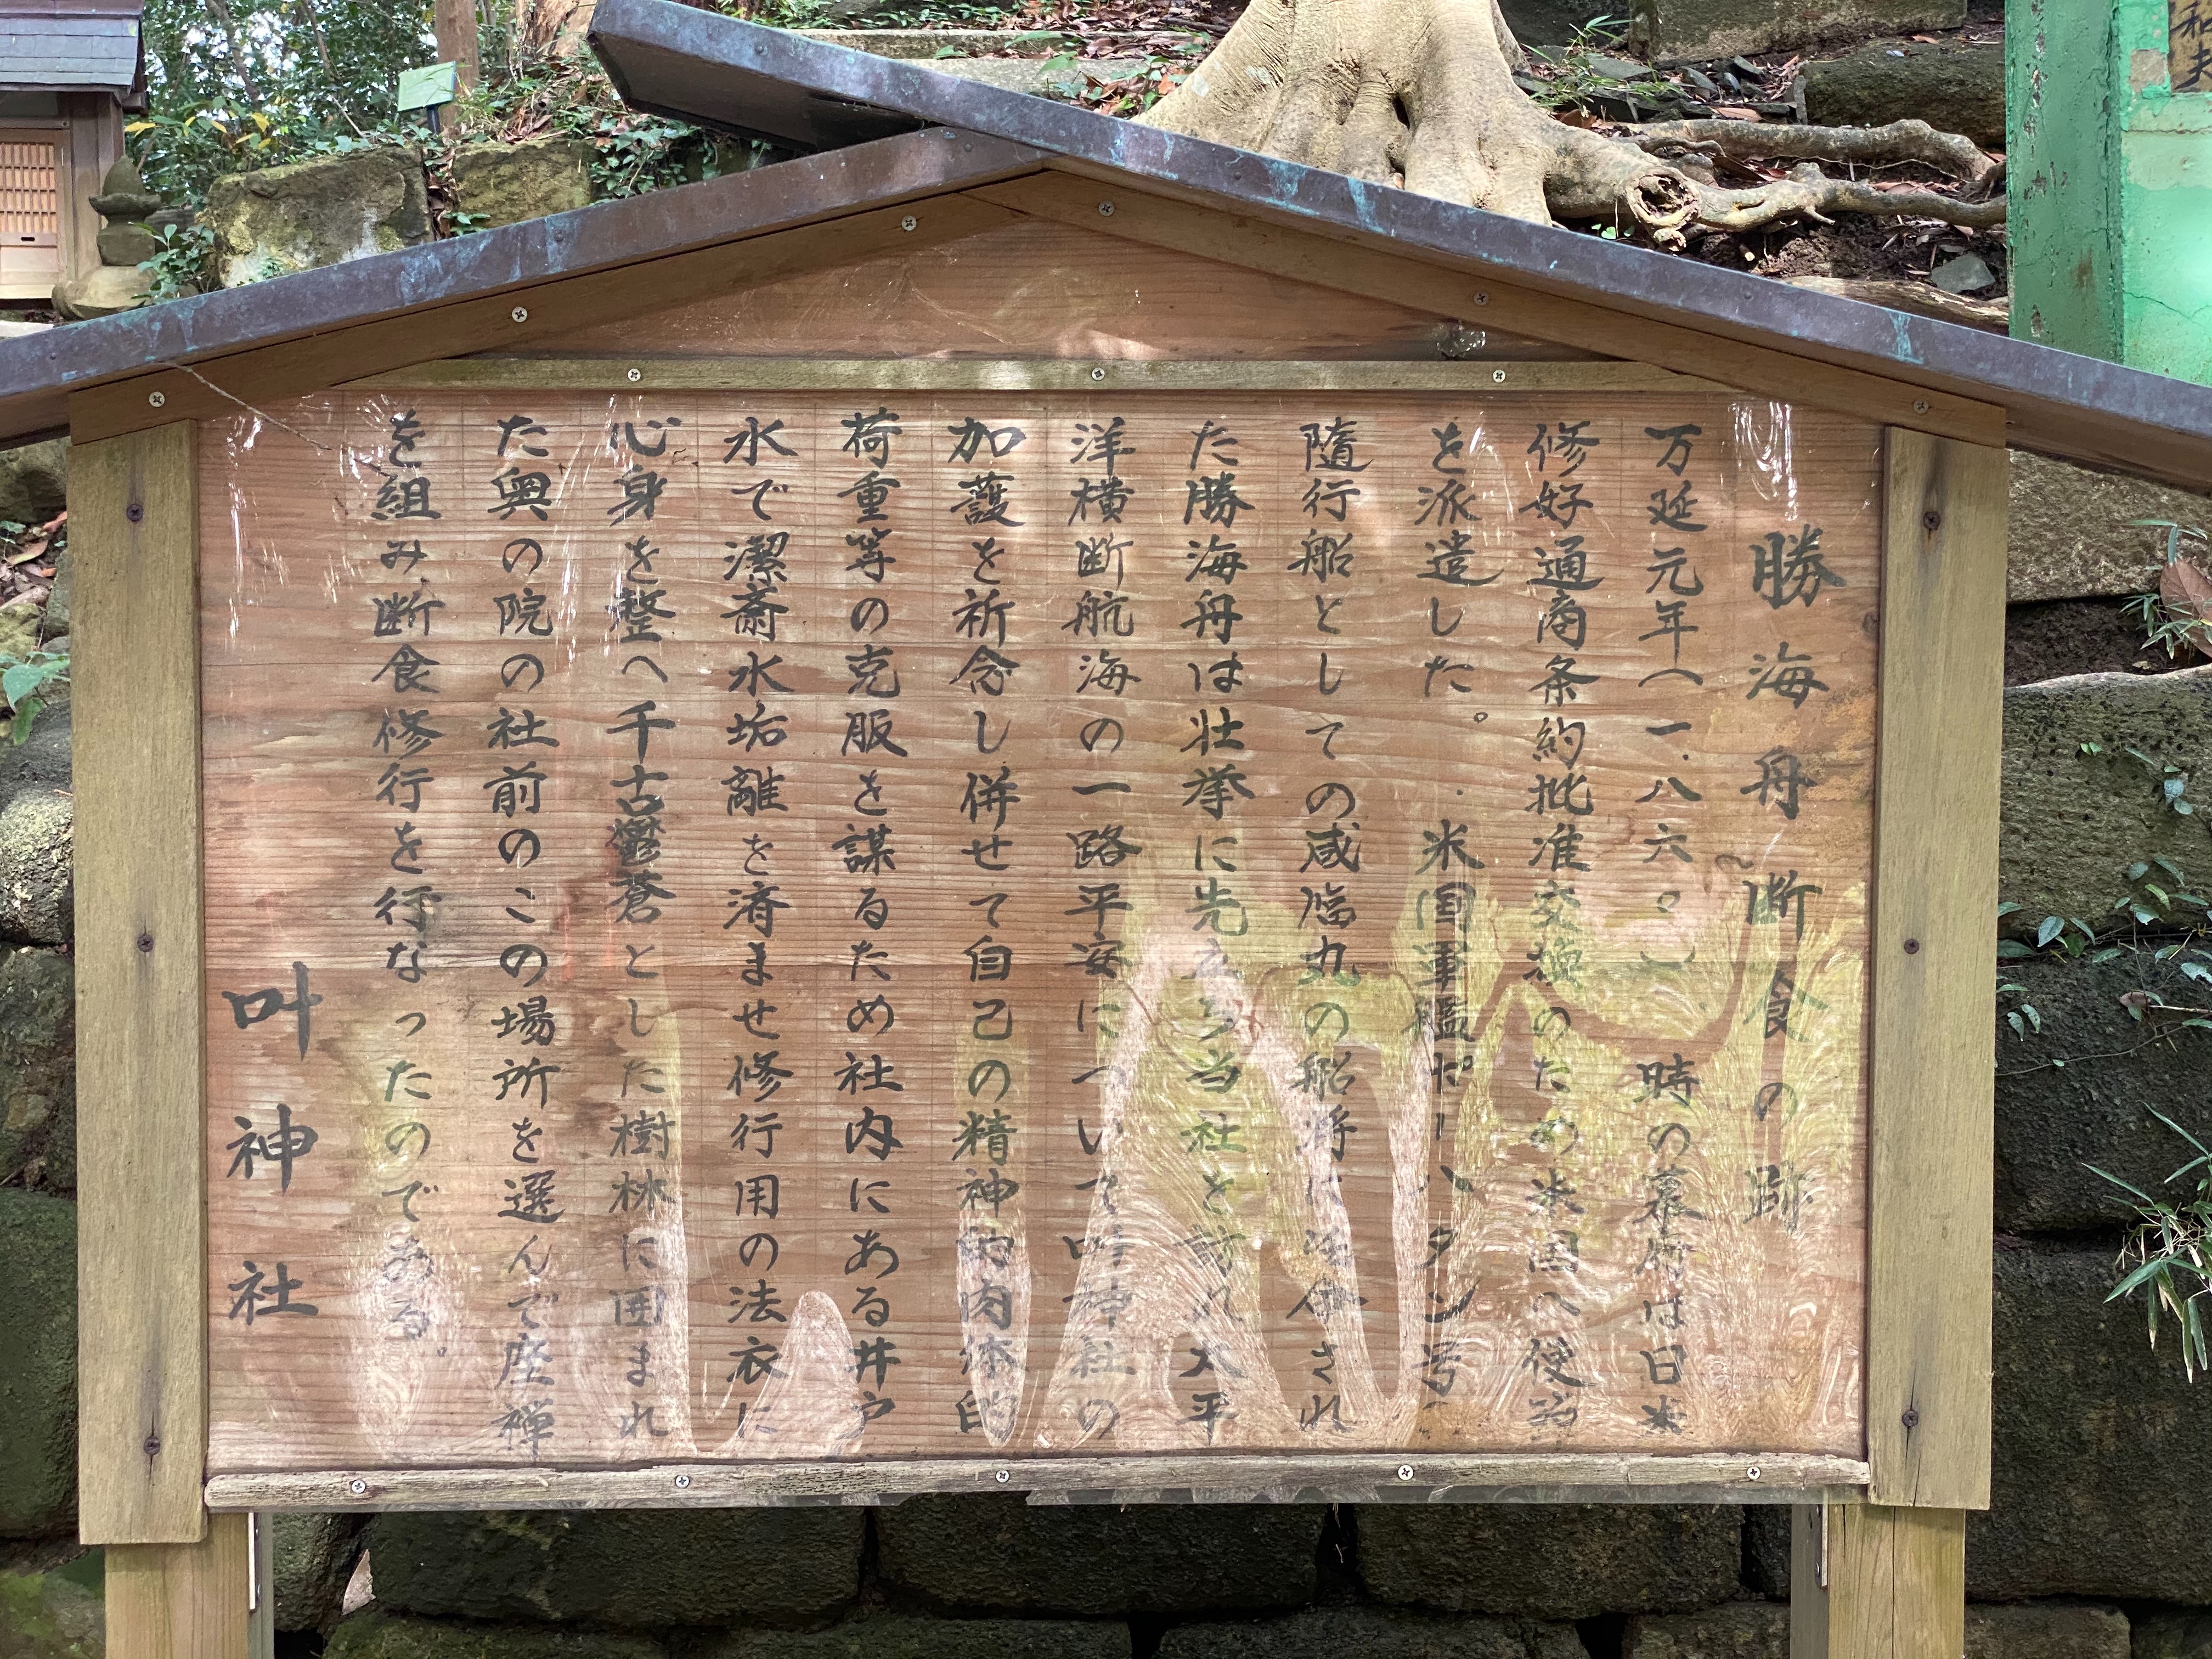 勝海舟断食の跡
万延元年(一八六〇)時の幕府は日米
修好通商条約批准交換のため米国へ使節
を派遣した。米国軍艦ポーハタン号
隨行船としての咸臨丸の船将に任命され
た勝海舟は壮挙に先立ち当社を訪れ太平
洋横断航海の一路平安について叶神社の
加護を祈念し併せて自己の精神的肉体的
荷重等の克服を謀るため社内にある井戸
水で潔斎水垢離を済ませ修行用の法衣に
心身を整へ千古鬱蒼とした樹林に囲まれ
た奥の院の社前のこの場所を選んで座禅
を組み断食修行を行なったのである。
叶神社